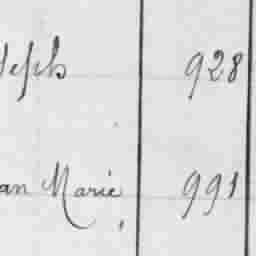 seph 928
an Marie 991